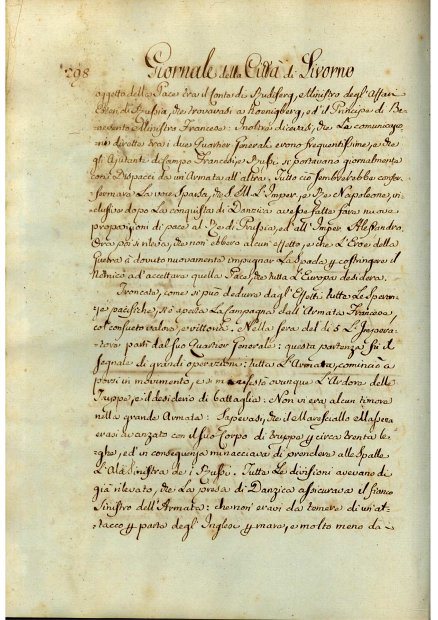 298 Giornale della Città di Livorno
oggetto della Pace era il Conte di Budsberg, e Ministro degl'Affari
Esteri di Russia, che trovavasi a Koenigberg, ed il Principe di Be=
nevento Ministro Francese: Inoltre dicevasi, che La comunicazio=
ni dirette tra i due Quartier Generali erono frequentissime, e che
gli Ajutante di Campo Francesi, e Russi si portavano giornalmente
con i Dispacci da un'Armata all'altra. Tutto ciò sembrerebbe confer=
fermare La voce sparsa, che S. M. L'Imper. e Re Napoleone, in=
clusive dopo La conquista di Danzica avesse fatte fare nuove
proposizioni di pace al Re di Prussia, ed all'Imper. Alessandro.
Ora poi si rileva, che non ebbero alcun effetto, e che L'Eroe della
Guerra à dovuto nuovamente impugnar La Spada p costringere il
Nemico ad accettare quella Pace, che tutta L'Europa desidera.
Troncate, come si può dedurre dagl'Effetti tutte Le Speran=
ze pacifiche, si è aperta La Campagna dall'Armata Francese,
col consueto valore, e vittoria. Nella sera del dì 5 L'Impera=
tore partì dal suo Quartier Generale: questa partenza fù il
segnale di grandi operazioni: tutta L'Armata, cominciò a
porsi in movimento, e si manifestò ovunque L'Ardore delle
Truppe, e il desiderio di battaglia: Non vi era alcun timore
nella grande Armata: Sapevasi, che il Maresciallo Massena
erasi avanzato con il suo Corpo di truppe p circa trenta le=
ghe, ed in conseguenza minacciava di prendere alle Spalle
L'Ala Sinistra de' Russi. Tutte Le divisioni avevano di
già rilevato, che La presa di Danzica assicurava il fianco
Sinistro dell'Armata: che non eravi da temere di un'at=
tacco p parte degl'Inglesi p mare, e molto meno da=